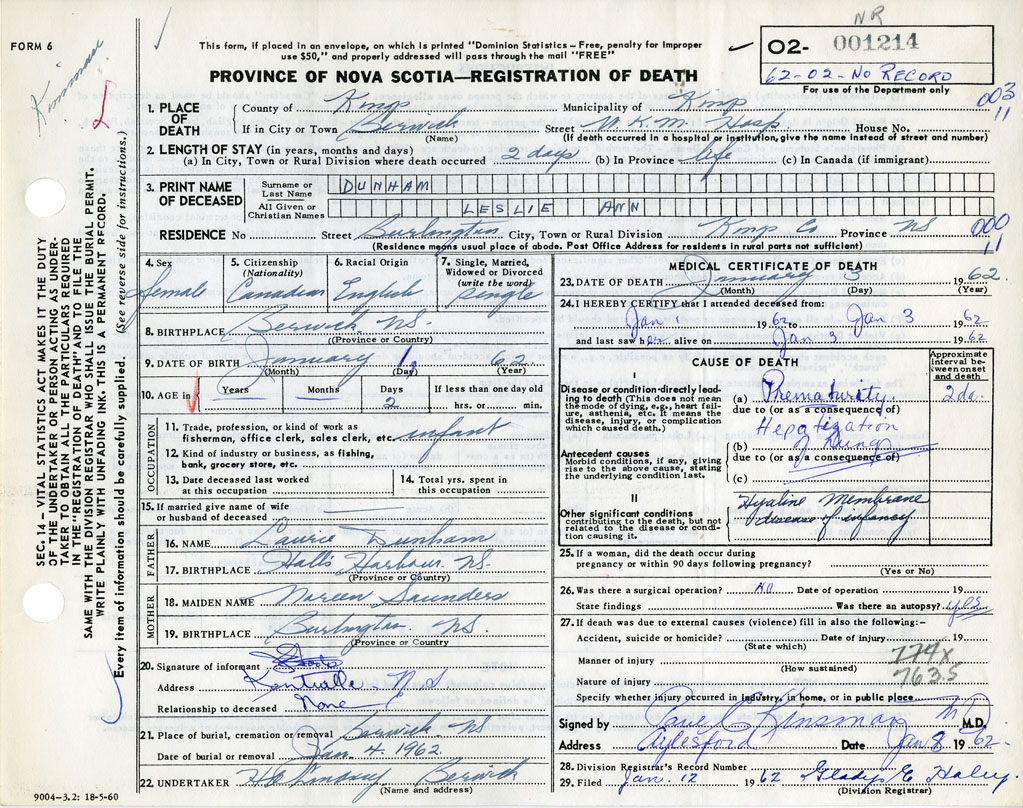 NR
FORM 6
Kinsman
This form, if placed in an envelope, on which is printed "Dominion Statistics—Free, penalty for improper
use $50," and properly addressed will pass through the mail "FREE"
02- 001214
62-02-No Record
For use of the Department only
PROVINCE OF NOVA SCOTIA—REGISTRATION OF DEATH
003
11
1. PLACE OF DEATH County of Kings Municipality of Kings
If in City or Town Berwick Street W.K.M. Hosp House No.
(Name) (If death occurred in a hospital or institution, give the name instead of street and number)
2. LENGTH OF STAY (in years, months and days)
(a) In City, Town or Rural Division where death occurred 2 days (b) In Province life (c) In Canada (if immigrant)
3. PRINT NAME OF DECEASED Surname or Last Name DUNHAM
All Given or Christian Names LESLIE ANN
RESIDENCE No Street Burlington City, Town or Rural Division Kings Co Province NS
000
11
(Residence means usual place of abode. Post Office Address for residents in rural parts not sufficient)
SEC. 14—VITAL STATISTICS ACT MAKES IT THE DUTY
OF THE UNDERTAKER OR PERSON ACTING AS UNDER-
TAKER TO OBTAIN ALL THE PARTICULARS REQUIRED
IN THE "REGISTRATION OF DEATH" AND TO FILE THE
SAME WITH THE DIVISION REGISTRAR WHO SHALL ISSUE THE BURIAL PERMIT.
WRITE PLAINLY WITH UNFADING INK. THIS IS A PERMANENT RECORD.
Every item of information should be carefully supplied. (See reverse side for instructions.)
4. Sex female
5. Citizenship (Nationality) Canadian
6. Racial Origin English
7. Single, Married, Widowed or Divorced (write the word) single
8. BIRTHPLACE Berwick NS.
(Province or Country)
9. DATE OF BIRTH January 1, 62
(Month) (Day) (Year)
10. AGE in Years Months Days 2 If less than one day old
hrs. or min.
OCCUPATION
11. Trade, profession, or kind of work as
fisherman, office clerk, sales clerk, etc. infant
12. Kind of industry or business, as fishing,
bank, grocery store, etc.
13. Date deceased last worked at this occupation
14. Total yrs. spent in this occupation
15. If married give name of wife
or husband of deceased
FATHER
16. NAME Laurie Dunham
17. BIRTHPLACE Halls Harbour NS.
(Province or Country)
MOTHER
18. MAIDEN NAME Noreen Saunders
19. BIRTHPLACE Burlington NS.
(Province or Country
20. Signature of informant
Address Kentville NS
Relationship to deceased None
21. Place of burial, cremation or removal Berwick NS
Date of burial or removal Jan 4. 1962
22. UNDERTAKER Berwick
(Name and address)
9004-3.2: 18-5-60
MEDICAL CERTIFICATE OF DEATH
23. DATE OF DEATH January 3 1962.
(Month) (Day) (Year)
24. I HEREBY CERTIFY that I attended deceased from:
Jan 1 1962 to Jan 3 1962
and last saw her alive on Jan 3 1962
CAUSE OF DEATH
Approximate interval between onset and death
I
Disease or condition directly lead-
ing to death (This does not mean
the mode of dying, e.g., heart fail-
ure, asthenia, etc. It means the
disease, injury, or complication
which caused death.)
(a) Prematurity 2da.
due to (or as a consequence of)
Hepatization
Antecedent causes
Morbid conditions, if any, giving
rise to the above cause, stating
the underlying condition last.
(b) of lung
due to (or as a consequence of)
(c)
II
Other significant conditions
contributing to the death, but not
related to the disease or condi-
tion causing it.
Hyaline Membrane
disease of infancy
25. If a woman, did the death occur during
pregnancy or within 90 days following pregnancy?
(Yes or No)
26. Was there a surgical operation? no Date of operation 19
State findings Was there an autopsy? yes
27. If death was due to external causes (violence) fill in also the following:—
Accident, suicide or homicide? Date of injury 19
(State which)
Manner of injury 774X
(How sustained)
Nature of injury 763.5
Specify whether injury occurred in industry, in home, or in public place
Signed by Paul C Kinsman MD M.D.
Address Aylesford Date Jan 8 1962
28. Division Registrar's Record Number
29. Filed Jan. 12 1962 Gladys E Haley
(Division Registrar)